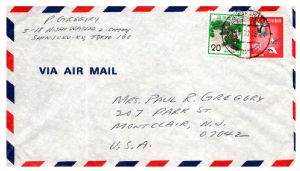 P. GREGORY
2-CHOME
SHINJUKU-KU, TOKYO 160
20
VIA AIR MAIL
MRS. PAUL R. GREGORY
207 PARK ST.
MONTCLAIR, N.J.
07042
U.S.A.